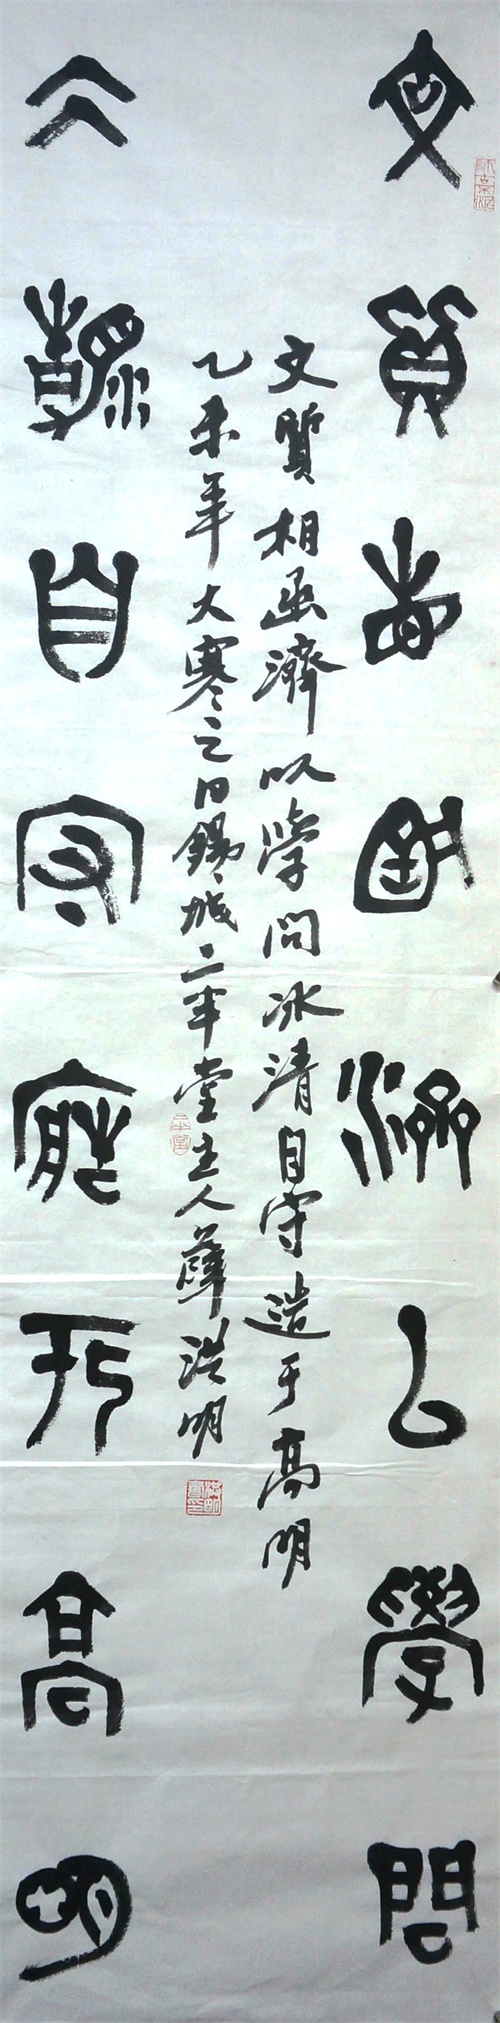 文質相函濟以學問
文質相函濟以學問冰清自守造于高明
乙未年大寒之日錫城二半堂主人薛浩明
冰清自守造于高明